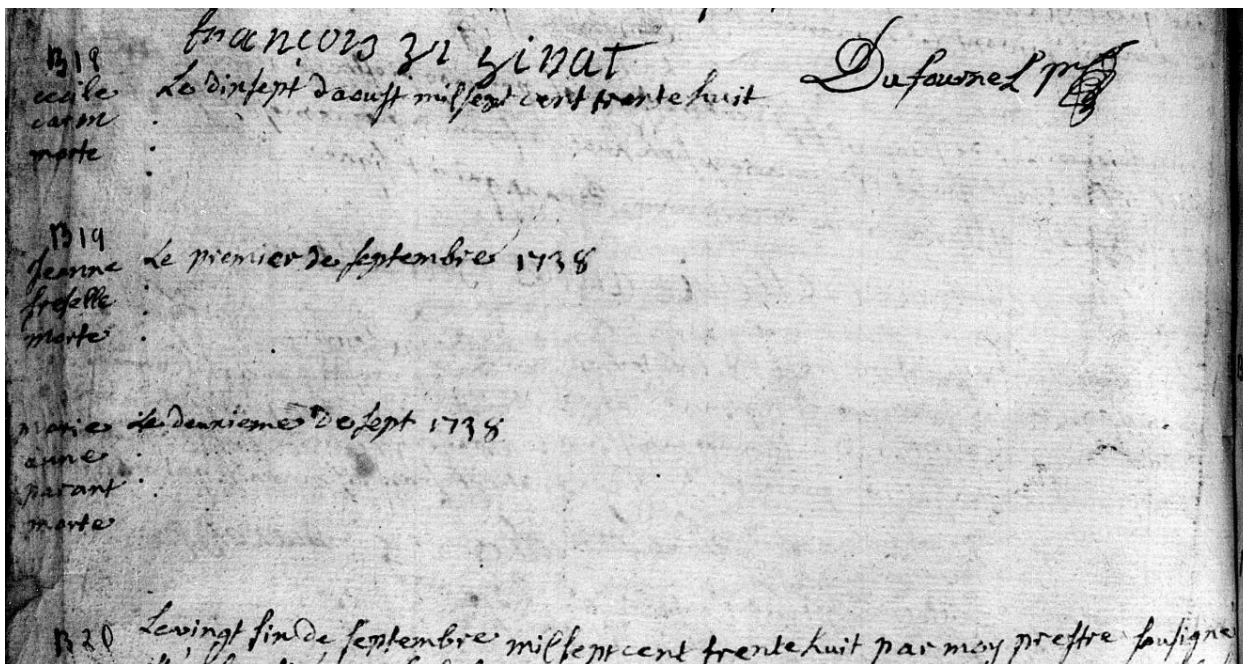 francois zi zinat
Dufournel ptre
B18
cecile
carm
morte
Le dixsept daoust mil sept cent trente huit
B19
Jeanne
freselle
morte
Le premier de septembre 1738
marie
anne
parant
morte
Le deuxieme de sept 1738
B20
Le vingt six de septembre mil sept cent trente huit par moy prestre sousigné